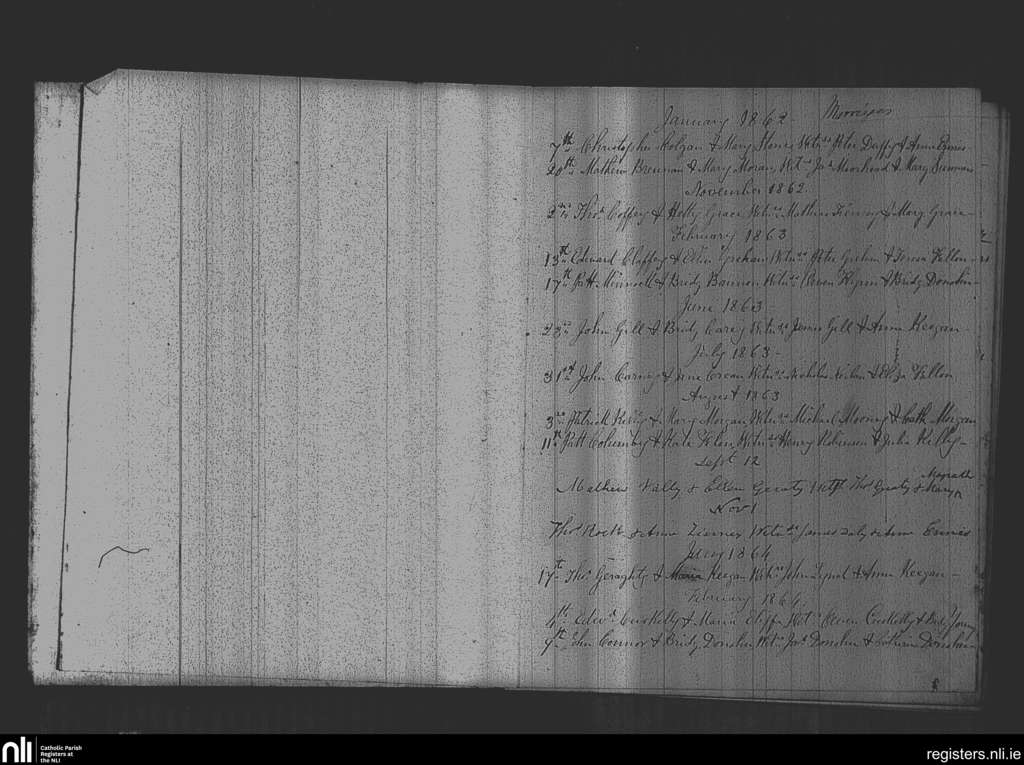 January 1862 Marriages
7th Christopher Holgan & Mary Wetns Peter Duffy & Anne
20th Mathew Brennan & Mary Moran Wetns Jas Moorhead & Mary
November 1862
2nd Thos Coffey & Hetty Grace Wetns Mathew & Mary Grace
February 1863
13th Edward Claffey & Ellen Graham Wetns Peter Graham & Teresa Fallon
17th Patt & Bridy Bannon Wetns Owen Flynn & Bridy Donohu
June 1863
23rd John Gill & Bridy Carey Wetns James Gill & Anne Keegan
July 1863
31st John Carney & Anne Wetns Nicholas & Eliza Fallon
August 1863
3rd Patrick Kelly & Mary Morgan Wetns Michael Mooney & Cath Morgan
11th Patt & Anne Wetns Henry Robinson & Julia Kelly
Sept 12
Mathew & Ellen Geraty Wets Thos Geraty & Mary Magrath
Nov 1
Thos Rock & Anne Wetns James Daly & Anne Ennis
Jany 1864
17th Thos Geraghty & Maria Keegan Wetns John Lynch & Anne Keegan
February 1864
4th Edwd Cuskelly & Maria Wetns Owen Cuskelly & Bridy Young
9th John Connor & Bridy Donohu Wetns Jas Donohu & Catherine Donohu
nli
Catholic Parish
Registers at
the NLI
registers.nli.ie